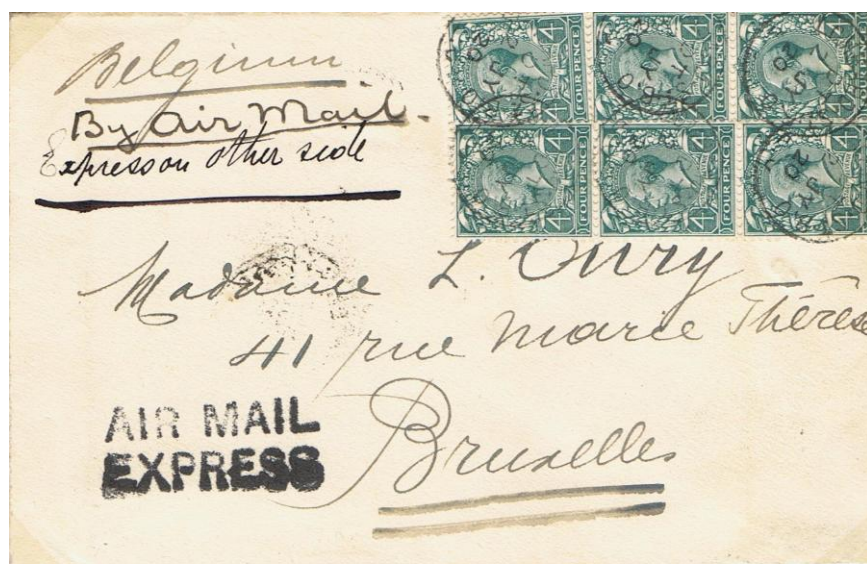 Belgium
By Air Mail.
Express on other side
FOUR PENCE
FOUR PENCE
FOUR PENCE
FOUR PENCE
FOUR PENCE
FOUR PENCE
Madame L. Oury
41 rue Marie Thérèse
AIR MAIL
EXPRESS
Bruxelles